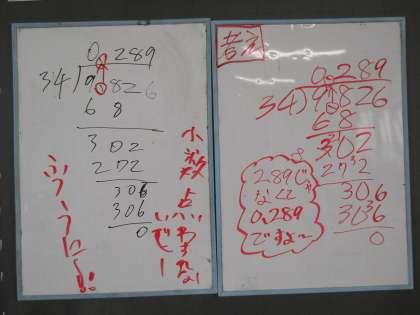 0.289
34)9.826
68
302
272
306
306
0
小数点
わすれな
いでー
答え
0.289
34)9.826
68
302
272
306
306
0
289じゃ
なくて
0.289
ですよ〜